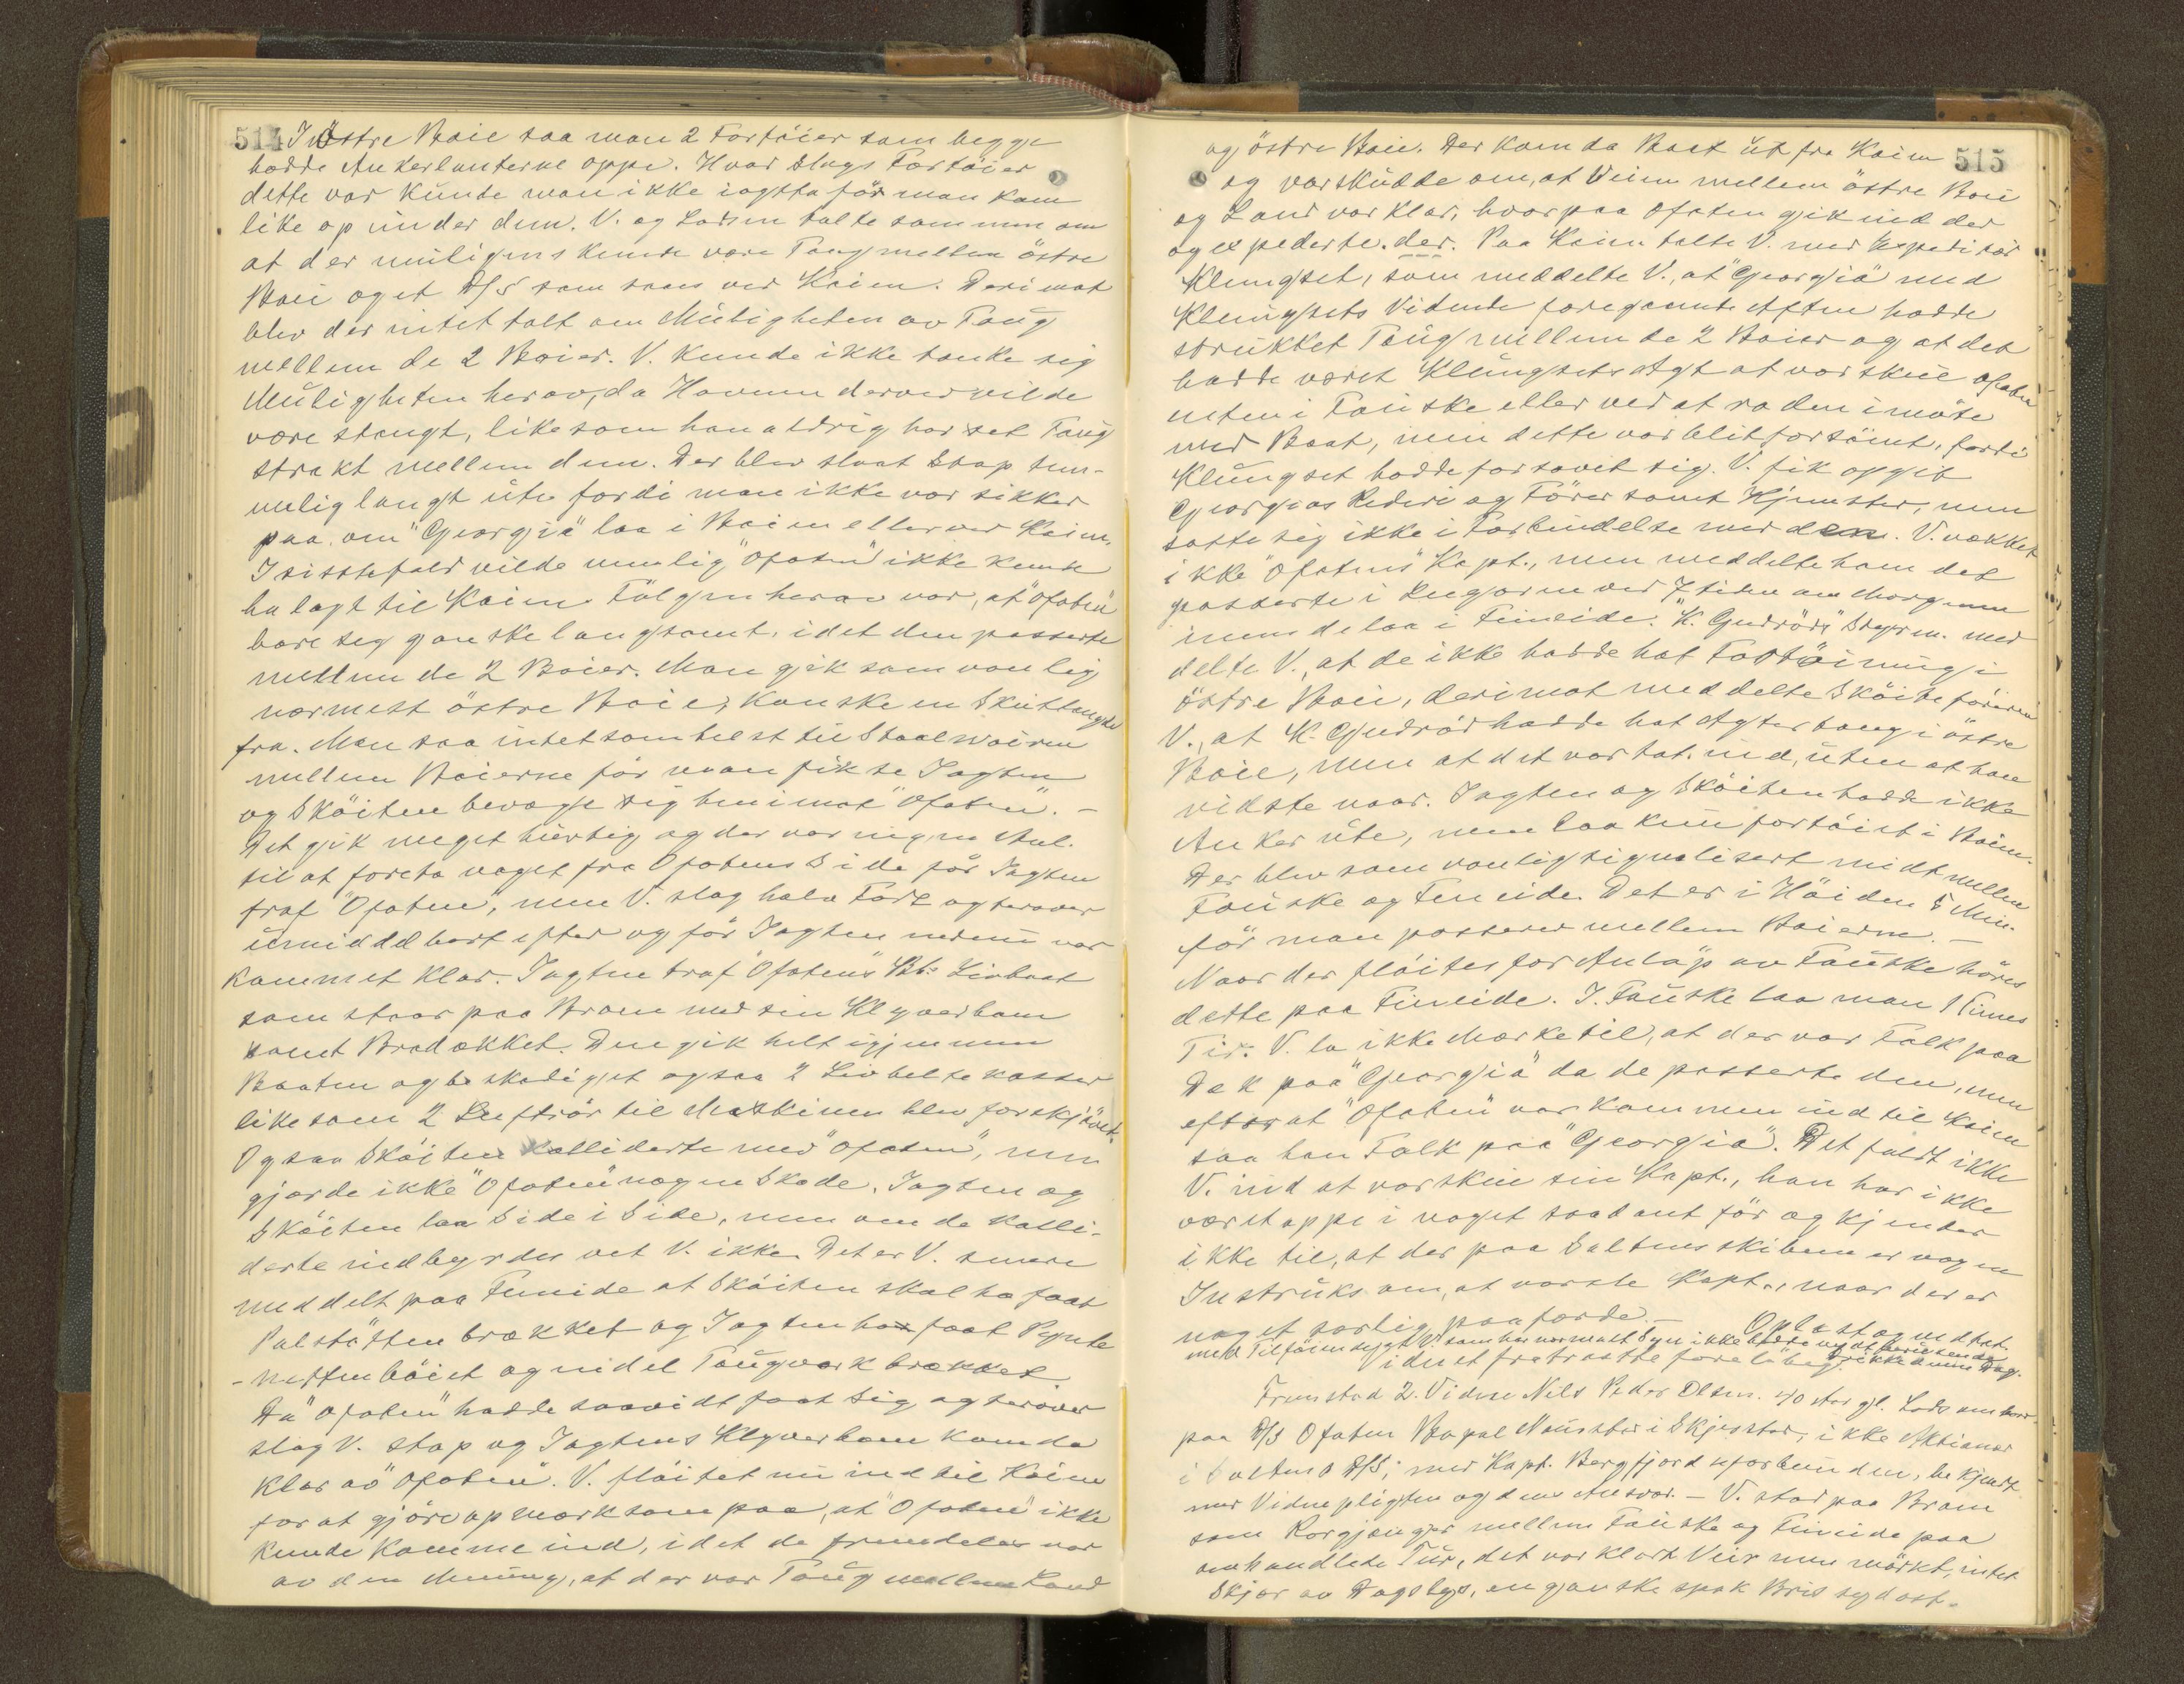 514 I Östre Boie saa man 2 Fortöier som begge
hadde Ankerlanterne oppe. Hvad Slags Fartöier
dette var kunde man ikke iagtta för man kom
like op under dem. V. og Losen talte sammen om
at der muligens kunde være Taug mellem östre
Boie og et D/S som saaes ved Kaien. Derimot
blev der intet talt om Muligheten av Taug
mellem de 2 Boier. V. kunde ikke tænke sig
Muligheten herav, da Havnen derved vilde
være stængt, likesom han aldrig har set Taug
strakt mellem dem. Der blev slaat Stop tem-
melig langt ute fordi man ikke var sikker
paa om "Georgia" laa i Boien eller ved Kaien.
I sisstefald vilde nemlig "Ofoten" ikke kunde
ha lagt til Kaien. Fölgen herav var, at "Ofoten"
bare seg ganske langsomt, idet den passerte
mellem de 2 Boier. Man gik som vanlig
nærmest östre Boie, kanske en Skutlængde
fra. Man saa intetsomhelst til Staalwairen
mellem Boierne för man fik se Jagten
og Sköiten bevæge sig henimot "Ofoten". -
Det gik meget hurtig og der var ingen Anl.
til at foreta noget fra Ofotens Side för Jagten
traf "Ofoten", men V. slog halv Fart agterover
umiddelbart efter og för Jagten endnu var
kommet klar. Jagten traf "Ofotens" Bb. Livbaat
som staar paa Broen med sin Klyverbom
samt Brodækket. Den gik helt igjennem
Baaten og beskadiget ogsaa 2 Livbeltekasser
likesom 2 Luftrör til Maskinen blev forskjövet.
Ogsaa Sköiten kolliderte med "Ofoten", men
gjorde ikke "Ofoten" nogen Skade. Jagten og
Sköiten laa Side i Side, men om de kolli-
derte indbyrdes vet V. ikke. Det er V. senere
meddelt paa Finneide at Sköiten skal ha faat
Palstötten brækket og Jagten har faat Pynte
-netten böiet og endel Taugverk brækket
Da "Ofoten" hadde saavidt faat Sig agterover
slog V. stop og Jagtens Klyverbom kom da
klar av "Ofoten". V. flöitet nu ind til Kaien
for at gjöre opmerksom paa, at "Ofoten" ikke
kunde komme ind, idet de fremdeles var
av den Mening, at der var Taug mellem Land
og östre Boie. Der kom da Baat ut fra Kaien 515
og varskudde om, at Veien mellem östre Boie
og Land var klar, hvorpaa Ofoten gik ind der
og expederte der. Paa Kaien talte V. med Expeditör
Klungset, som meddelte V., at "Georgia" med
Klungsets Vidende foregaaende Aften hadde
strukket Taug mellem de 2 Boier og at det
hadde været Klungsets Agt at varskue Ofoten
enten i Fauske eller ved at ro den imöte
med Baat, men dette var blit forsömt, fordi
Klungset hadde forsovet sig. V. fik opgit
Georgias Rederi og Förer samt Hjemsted, men
satte sig ikke i Forbindelse med den. V. vækket
ikke "Ofotens" Kapt., men meddelte ham det
passerte i Lugaren ved 7 tiden om Morgenen
imens de laa i Finneide. "K. Gudröds" Styrm. med
delte V., at de ikke hadde hat Fortöining i
östre Boie, derimot meddelte Sköiteföreren
V., at K. Gudröd hadde hat Agtertaug i östre
Boie, men at det var tat ind, uten at han
vidste naar. Jagten og Sköiten hadde ikke
Anker ute, men laa kun fortöiet i Boien.
Der blev som vanlig signalisert midt mellem
Fauske og Finneide. Det er i Höiden 5 Min.
för man passerer mellem Boierne. -
Naar der flöites for Anlöp av Fauske höres
dette paa Finneide. I Fauske laa man 1 Times
Tid. V. la ikke Mærke til, at der var Folk paa
Dek paa "Georgia" da de passerte den, men
efterat "Ofoten" var kommen ind til Kaien
saa han Folk paa "Georgia". Det faldt ikke
V. ind at varskue sin Kapt., han har ikke
været oppe i noget saadant för og kjender
ikke til, at der paa Saltensskibene er nogen
Instruks om, at varsle Kapt., naar der er
noget særlig paafærde. - Oplæst og vedtat.
med Tilföiende V. som har normalt Syn ikke
iduet fratraadte foreløbig.
Fremstod 2. Vidne Nils Peder Olsen. 40 Aar gl. Lods ombord
paa D/S Ofoten Bopæl Naustbr i Skjerstad, ikke Aktionær
i Saltens D/S; med Kapt. Bergfjord uforbunden, bekjendt
med Vidnepligten og dens Ansvar. - V. stod paa Broen
som Rorgjænger mellem Fauske og Finneide paa
omhandlede Tur, det var klart Veir men mörkt, intet
Skjær av Dagslys, en ganske spak Bris sydost.